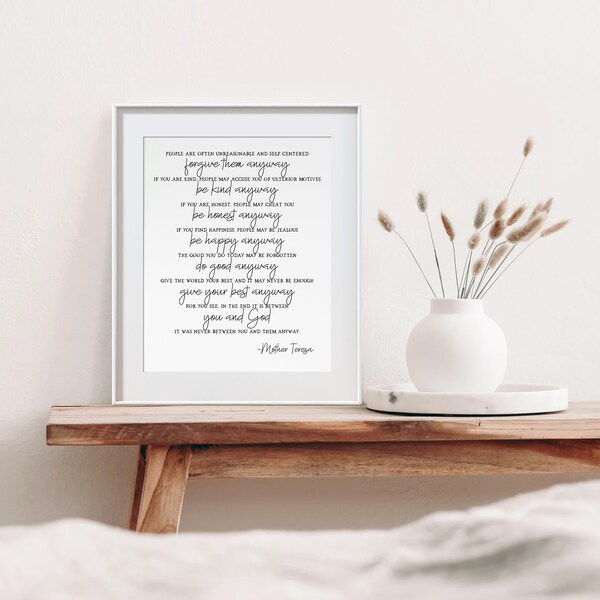 PEOPLE ARE OFTEN UNREASONABLE AND SELF CENTERED
forgive them anyway
IF YOU ARE KIND, PEOPLE MAY ACCUSE YOU OF ULTERIOR MOTIVES
be kind anyway
IF YOU ARE HONEST, PEOPLE MAY CHEAT YOU
be honest anyway
IF YOU FIND HAPPINESS, PEOPLE MAY BE JEALOUS
be happy anyway
THE GOOD YOU DO TODAY MAY BE FORGOTTEN
do good anyway
GIVE THE WORLD YOUR BEST AND IT MAY NEVER BE ENOUGH
give your best anyway
FOR YOU SEE, IN THE END IT IS BETWEEN
you and God
IT WAS NEVER BETWEEN YOU AND THEM ANYWAY
-Mother Teresa